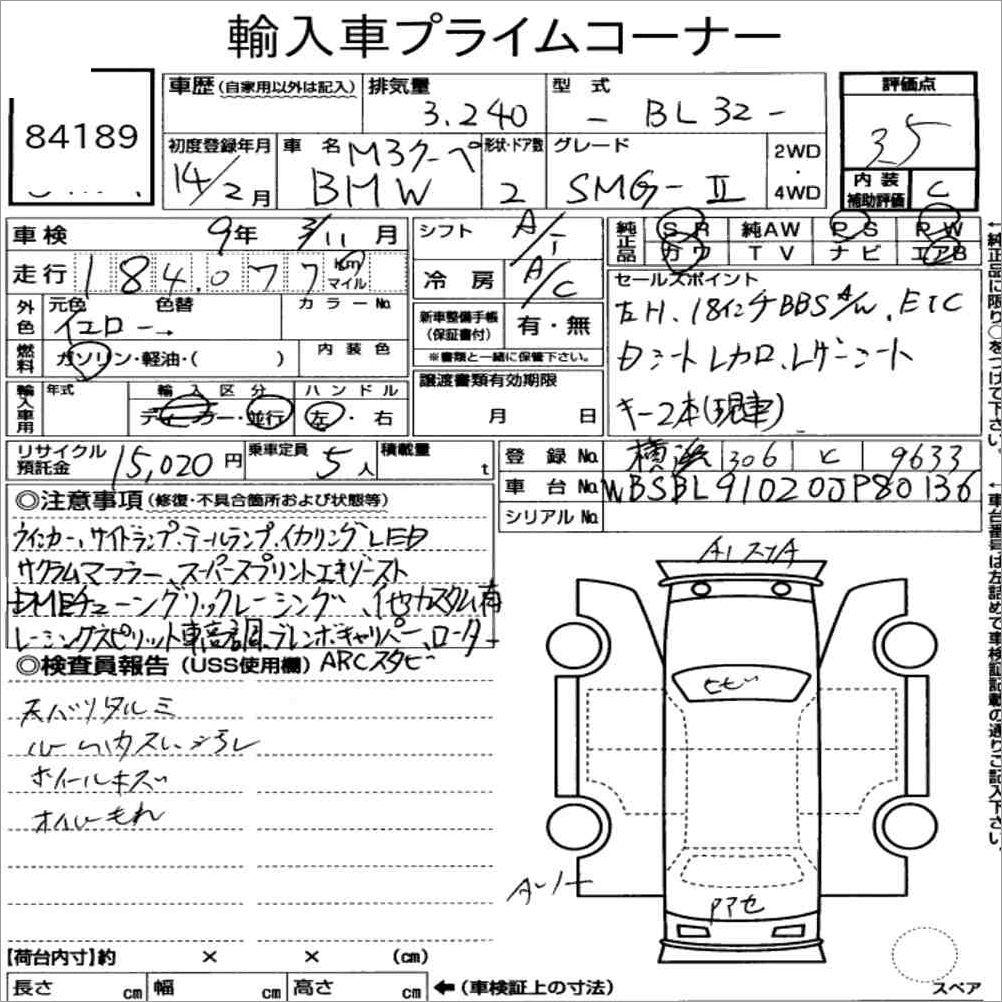 輸入車プライムコーナー
84189
車歴 (自家用以外は記入)
排気量
3.240
型 式
- BL32 -
評価点
35
初度登録年月
14/2月
車 名
M3クーペ
BMW
形状・ドア数
2
グレード
SMG-Ⅱ
2WD
・
4WD
内 装
補助評価
C
車検 9年 3/11月
シフト A/T
純正品
SR 純AW PS PW
カワ TV ナビ エアB
走行 184.077 km マイル
冷 房 A/C
セールスポイント
左H、18インチBBS A/W、ETC
外色 元色 色替 カラーNo.
イエロー→
新車整備手帳
(保証書付)
有・無
※書類と一緒に保管下さい。
Dシートレカロ、レザーシート
燃料 ガソリン・軽油・( ) 内装色
キー2本(現車)
輸入車用 年式 輸入区分 ハンドル
ディーラー・並行 左・右
譲渡書類有効期限
月 日
リサイクル
預託金
15,020円
乗車定員 5人
積載量 t
登録No. 横浜 306 と 9633
車台No. WBSBL91020JP80136
シリアルNo.
◎注意事項 (修復・不具合箇所および状態等)
ウィンカー、サイドランプ、テールランプ、イカリングLED
サクラムマフラー、スーパースプリントエキゾースト
DMEチューングリックレーシング、他カスタム有
レーシングスピリット車高調、ブレンボキャリパー、ローター
ARCスタビ
◎検査員報告 (USS使用欄)
天バリタルミ
ルームハカスレ、汚レ
ホイールキズ
オイルもれ
A1 スリA
ヒビ
【荷台内寸】約 × × (cm)
長さ cm 幅 cm 高さ cm
←(車検証上の寸法)
スペア
↑純正品に限り○をつけて下さい。
↑車台番号は左詰めで車検証記載の通りご記入下さい。